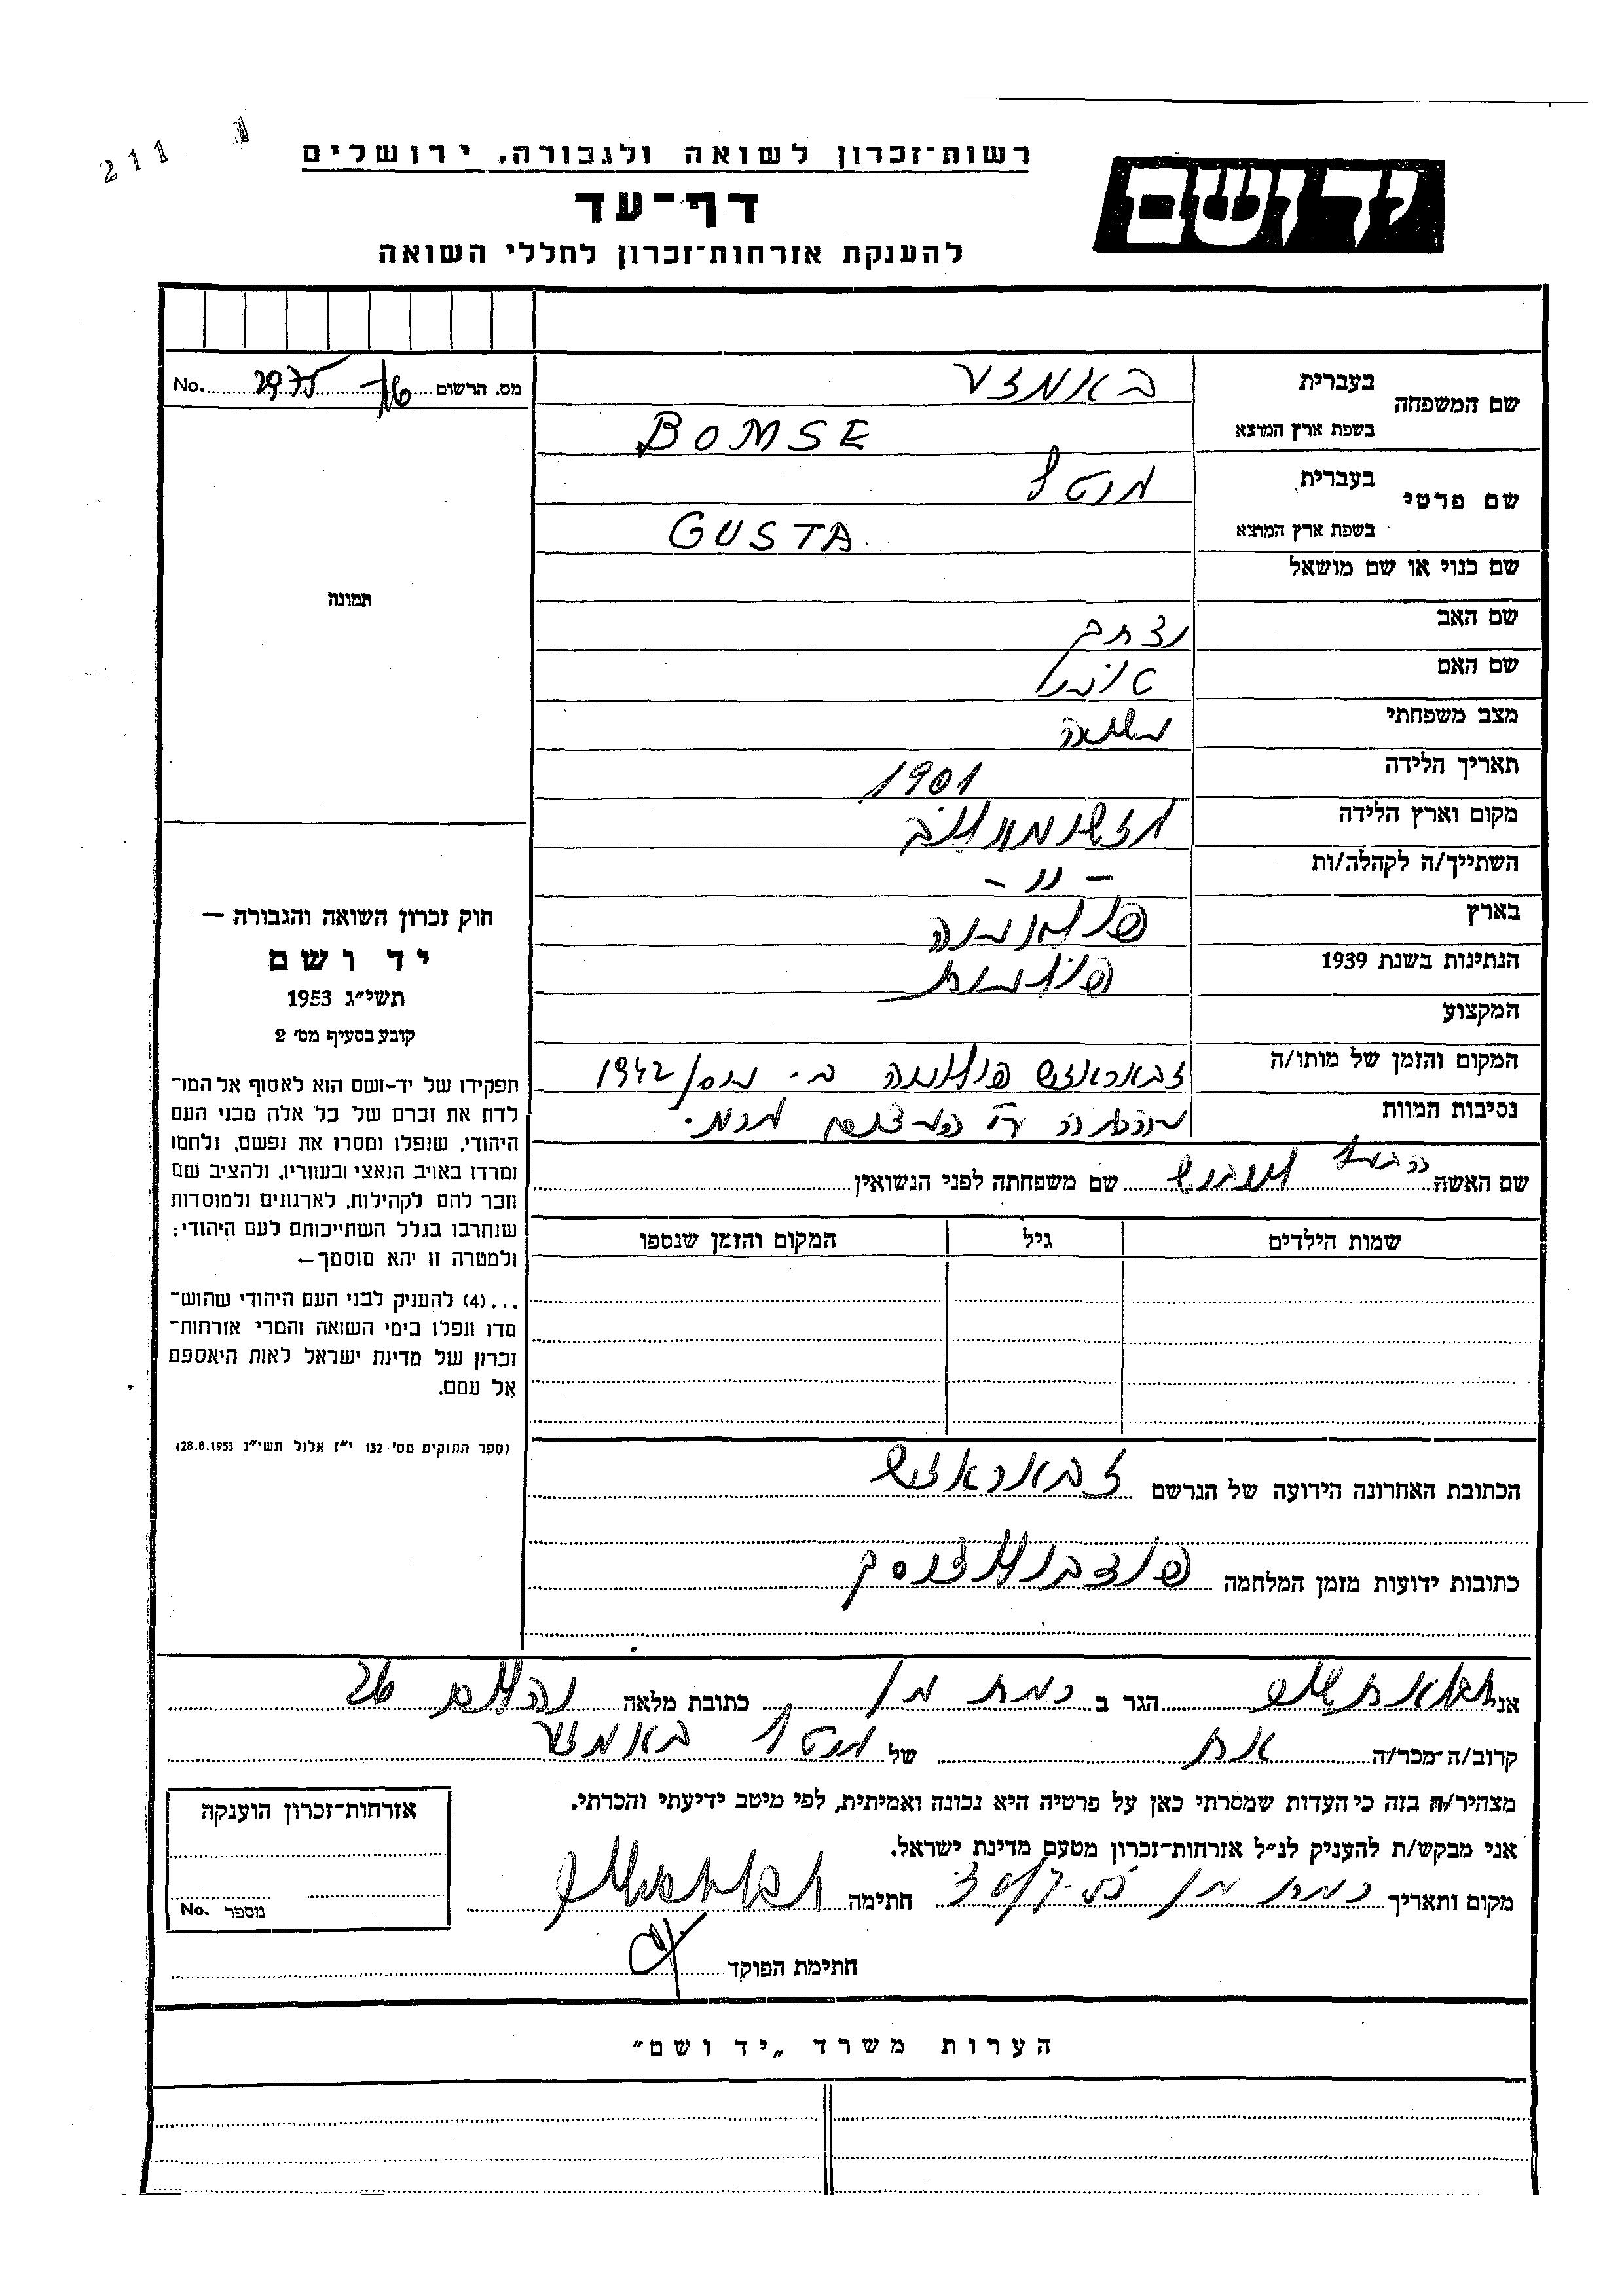 211 1
רשות־זכרון לשואה ולגבורה, ירושלים
יד ושם
דף־עד
להענקת אזרחות־זכרון לחללי השואה
No. 2975 16 מס. הרשום
שם המשפחה בעברית באמזע
בשפת ארץ המוצא BOMSE
שם פרטי בעברית
בשפת ארץ המוצא GUSTA
שם כנוי או שם מושאל
שם האב
שם האם טובה
מצב משפחתי נשואה
תאריך הלידה 1901
מקום וארץ הלידה
השתייך/ה לקהלה/ות – וו –
בארץ פולניה
הנתינות בשנת 1939 פולנית
המקצוע
המקום והזמן של מותו/ה זבאראזש פולניה ב. 1942
נסיבות המוות
שם האשה הבעל שם משפחתה לפני הנשואין
שמות הילדים גיל המקום והזמן שנספו
הכתובת האחרונה הידועה של הנרשם זבאראזש
כתובות ידועות מזמן המלחמה
תמונה
חוק זכרון השואה והגבורה –
יד ושם
תשי״ג 1953
קובע בסעיף מס׳ 2
תפקידו של יד-ושם הוא לאסוף אל המו־
לדת את זכרם של כל אלה מבני העם
היהודי, שנפלו ומסרו את נפשם, נלחמו
ומרדו באויב הנאצי ובעוזריו, ולהציב שם
וזכר להם לקהילות, לארגונים ולמוסדות
שנחרבו בגלל השתייכותם לעם היהודי;
ולמטרה זו יהא מוסמך–
...(4) להעניק לבני העם היהודי שהוש־
מדו ונפלו בימי השואה והמרי אזרחות־
זכרון של מדינת ישראל לאות היאספם
אל עמם.
(ספר החוקים מס׳ 132 י״ז אלול תשי״ג 28.8.1953)
אני הגר ב רמת גן כתובת מלאה 26
קרוב/ה־מכר/ה אח של באמזע
מצהיר/ה בזה כי העדות שמסרתי כאן על פרטיה היא נכונה ואמיתית, לפי מיטב ידיעתי והכרתי.
אני מבקש/ת להעניק לנ״ל אזרחות־זכרון מטעם מדינת ישראל.
מקום ותאריך רמת גן 30/7.55 חתימה
חתימת הפוקד
אזרחות־זכרון הוענקה
No. מספר
הערות משרד „יד ושם״